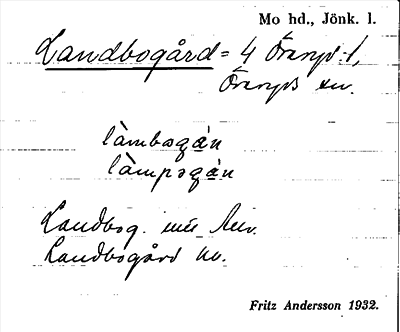 Mo hd., Jönk. l.
Landbogård = 4 Öreryd 1,
Öreryds sn.
làmbogán
làmpogán
Landbog.
Landbogård
Fritz Andersson 1932.